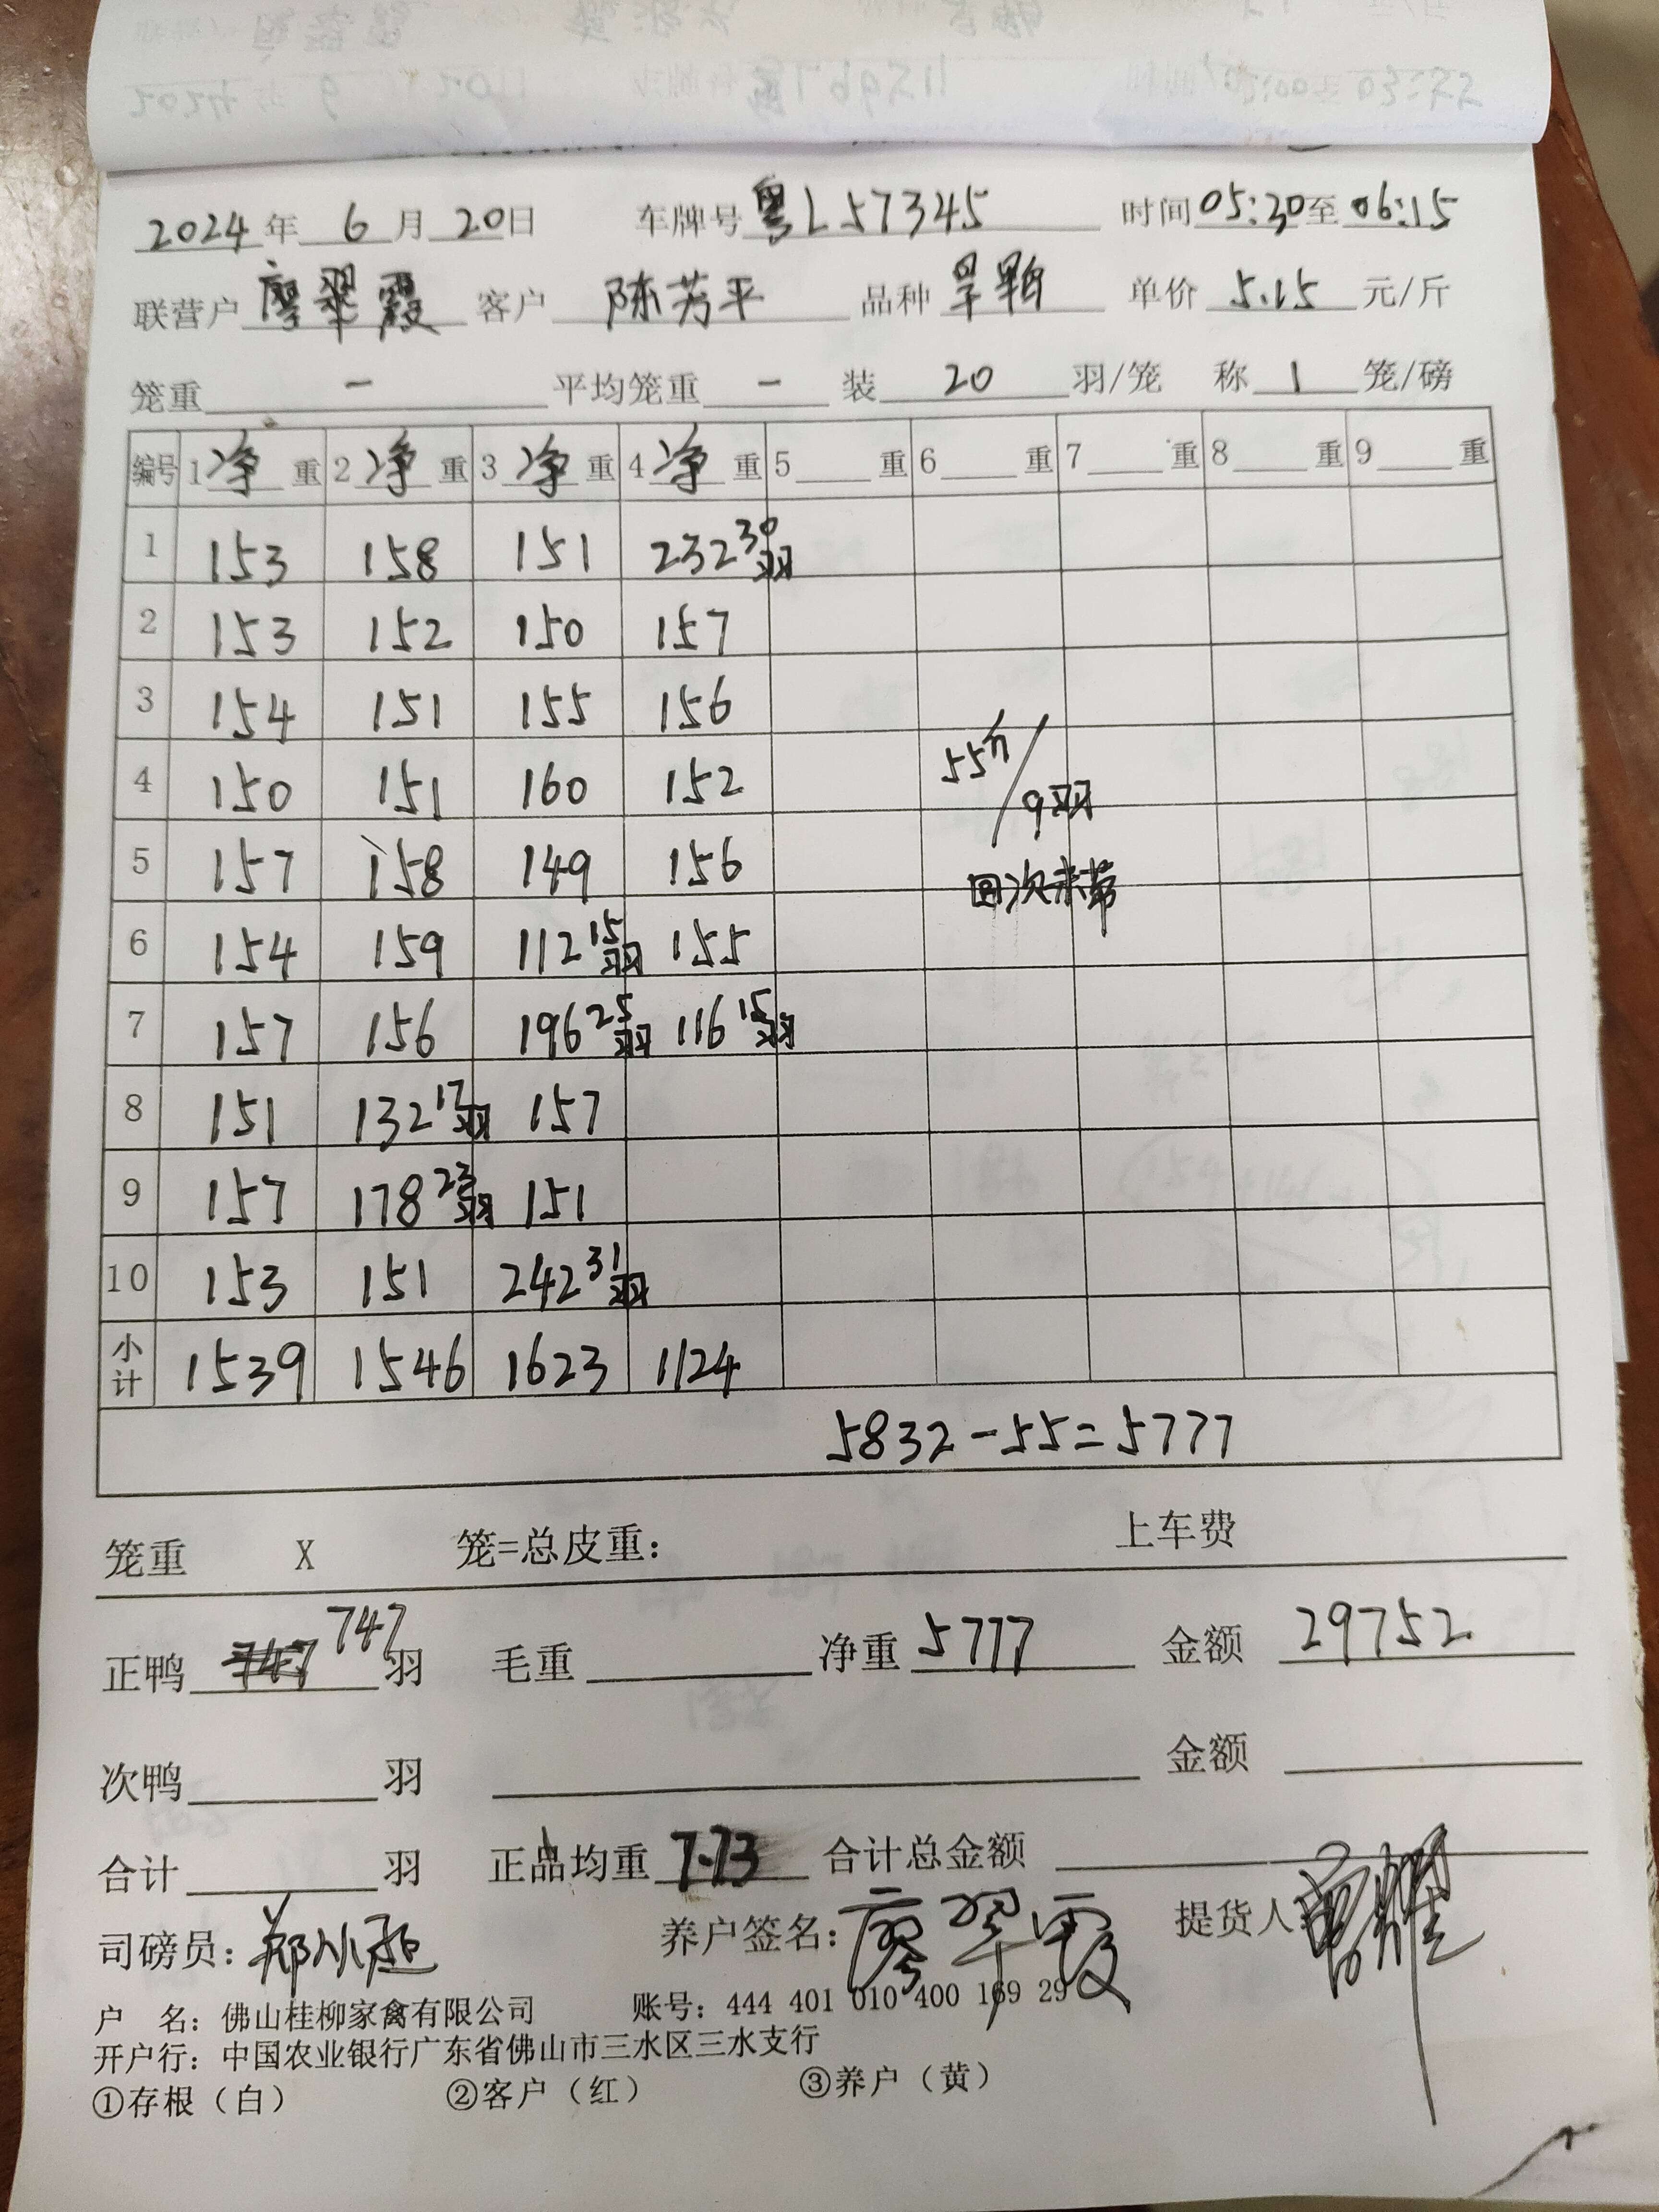 2024年 6月 20日 车牌号 粤L57345 时间 05:30至06:15
联营户 廖翠霞 客户 陈芳平 品种 旱鸭 单价 5.15 元/斤
笼重 - 平均笼重 - 装 20 羽/笼 称 1 笼/磅
编号 1 净 重 2 净 重 3 净 重 4 净 重 5 重 6 重 7 重 8 重 9 重
1 153 158 151 232 30羽
2 153 152 150 157
3 154 151 155 156
4 150 151 160 152 55斤/9羽
5 157 158 149 156 回次未带
6 154 159 112 15羽 155
7 157 156 196 25羽 116 15羽
8 151 132 17羽 157
9 157 178 23羽 151
10 153 151 242 31羽
小计 1539 1546 1623 1124
5832-55=5777
笼重 X 笼=总皮重: 上车费
正鸭 747 羽 毛重 净重 5777 金额 29752
次鸭 羽 金额
合计 羽 正品均重 7.73 合计总金额
司磅员: 养户签名: 廖翠霞 提货人
户 名: 佛山桂柳家禽有限公司 账号: 444 401 010 400 169 29
开户行: 中国农业银行广东省佛山市三水区三水支行
①存根（白） ②客户（红） ③养户（黄）